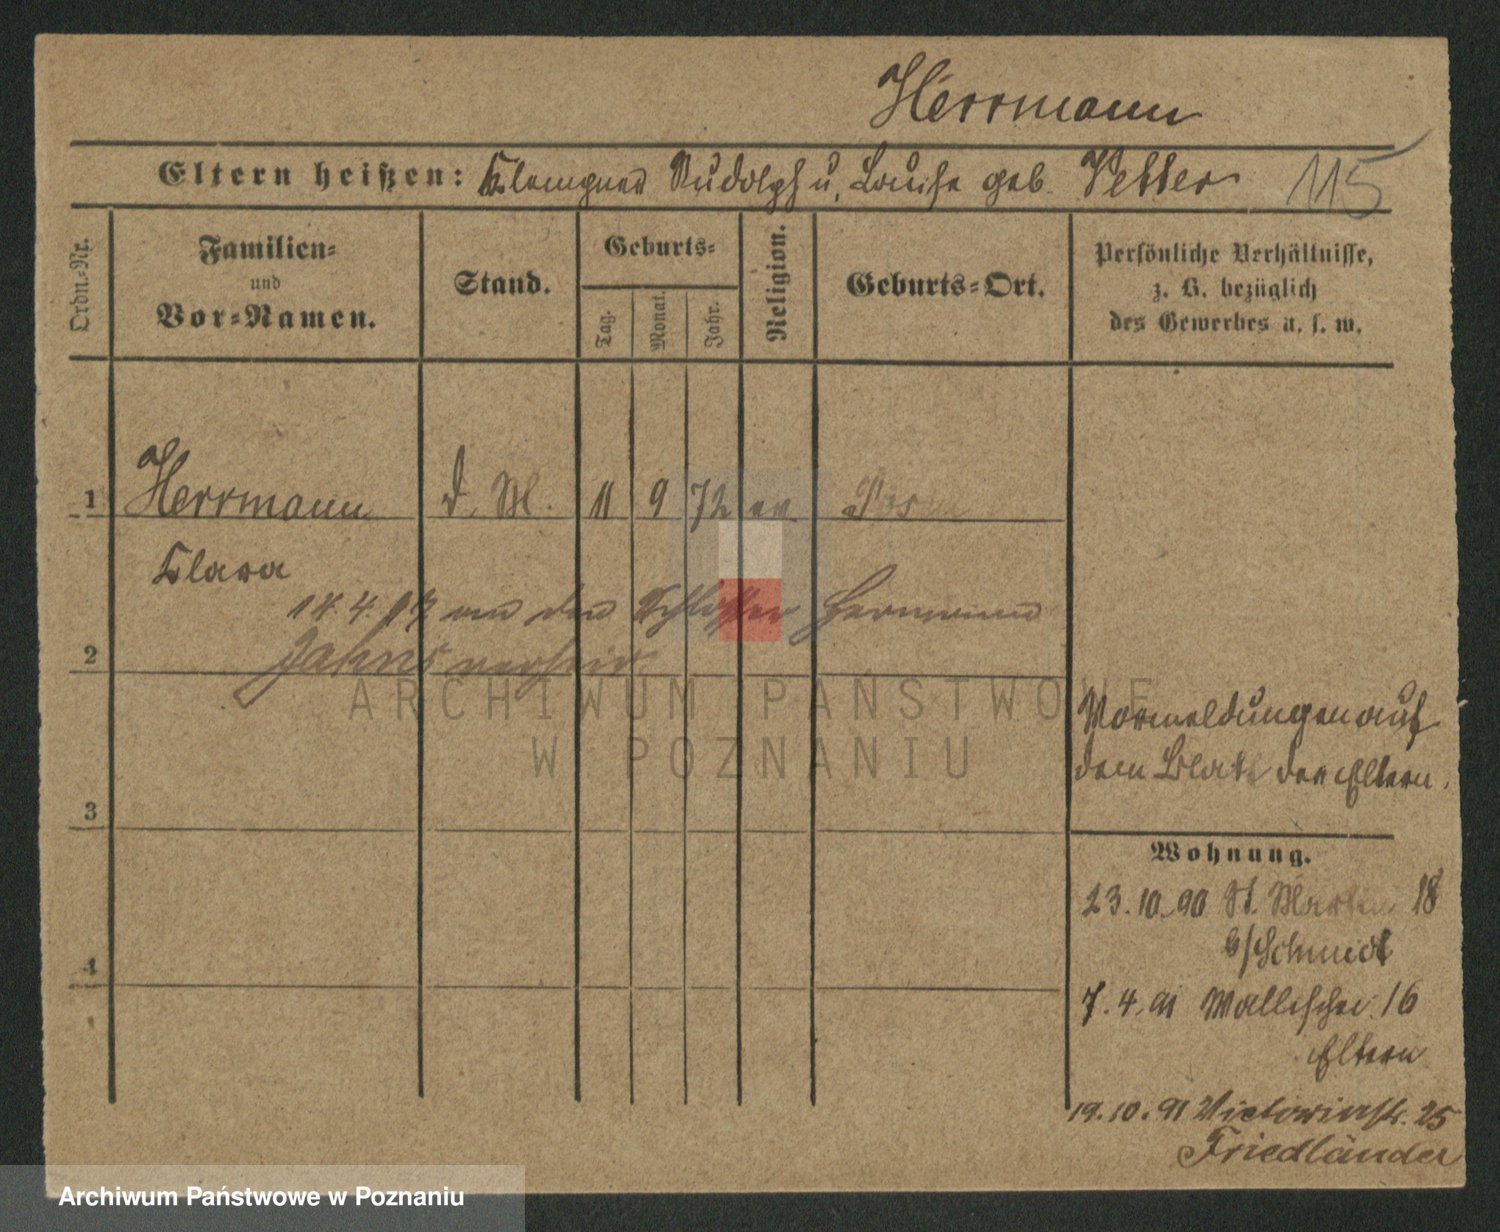 Herrmann
Eltern heißen: Klempner Rudolph u. Louise geb. Vetter 115
Ordn.-Nr.
Familien-
und
Vor-Namen.
Stand.
Geburts-
Tag.
Monat.
Jahr.
Religion.
Geburts-Ort.
Persönliche Verhältnisse,
z. B. bezüglich
des Gewerbes u. s. w.
1 Herrmann d. M. 11 9 72 ev Posen
Klara
18.4.97 an den Schlosser Hermann
2 Jahns verheir
ARCHIWUM PAŃSTWOWE
W POZNANIU
Vormeldungen auf
dem Blatt der Eltern.
3
Wohnung.
23.10.90 St. Martin 18
b/Schmidt
4
7.4.91 Wallischei 16
Eltern
19.10.91 Victoriastr. 25
Friedländer
Archiwum Państwowe w Poznaniu